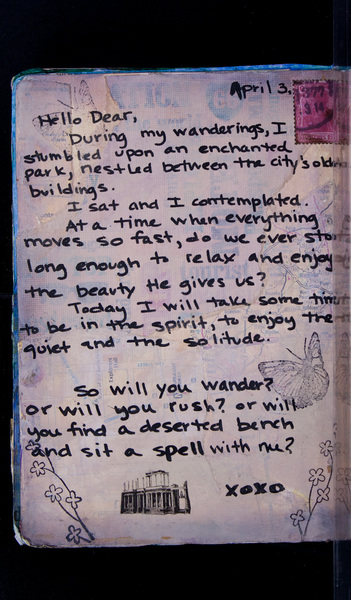 April 3.
Hello Dear,
During my wanderings, I
stumbled upon an enchanted
park, nestled between the city's
buildings.
I sat and I contemplated.
At a time when everything
moves so fast, do we ever
long enough to relax and enjoy
the beauty He gives us?
Today I will take some
to be in the spirit, to enjoy the
quiet and the solitude.
So will you wander?
or will you rush? or will
you find a deserted bench
and sit a spell with me?
xoxo